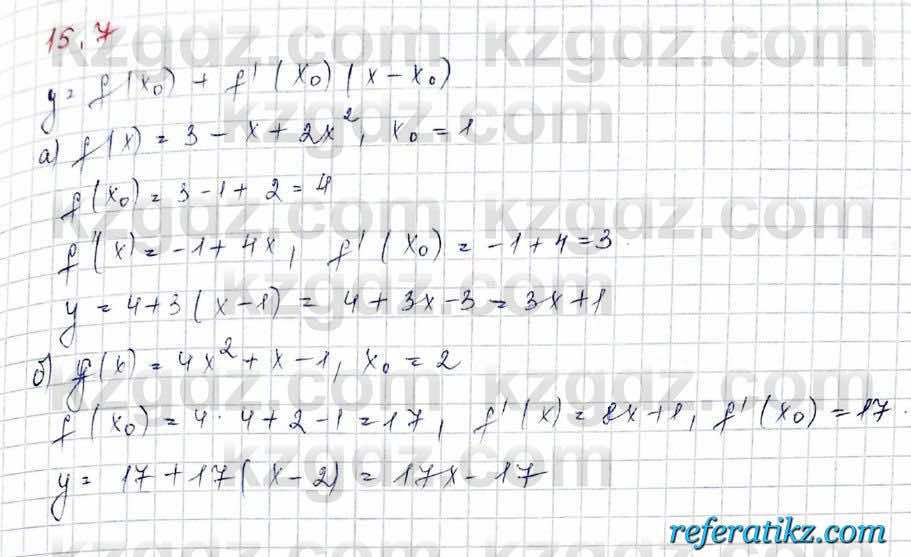 15.7
y = f(x₀) + f'(x₀)(x - x₀)
а) f(x) = 3 - x + 2x², x₀ = 1
f(x₀) = 3 - 1 + 2 = 4
f'(x) = -1 + 4x, f'(x₀) = -1 + 4 = 3.
y = 4 + 3(x - 1) = 4 + 3x - 3 = 3x + 1
б) f(x) = 4x² + x - 1, x₀ = 2
f(x₀) = 4 · 4 + 2 - 1 = 17, f'(x) = 8x + 1, f'(x₀) = 17.
y = 17 + 17(x - 2) = 17x - 17
kzgdz.com
referatikz.com